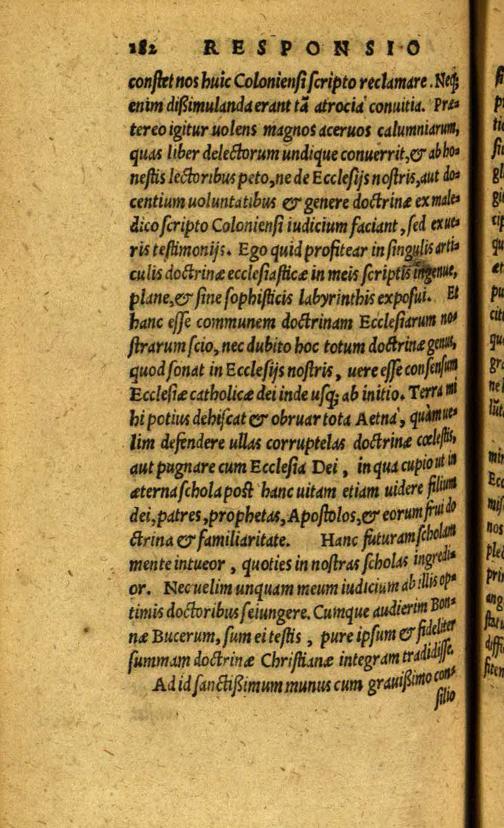 182 RESPONSIO
constet nos huic Coloniensi scripto reclamare. Neq;
enim dißimulanda erant tā atrocia conuitia. Præ-
tereo igitur uolens magnos aceruos calumniarum,
quas liber delectorum undique conuerrit, & ab ho-
nestis lectoribus peto, ne de Ecclesijs nostris, aut do-
centium uoluntatibus & genere doctrinæ ex male-
dico scripto Coloniensi iudicium faciant, sed ex ue-
ris testimonijs. Ego quid profitear in singulis arti-
culis doctrinæ ecclesiasticæ in meis scriptis ingenue,
plane, & sine sophisticis labyrinthis exposui. Et
hanc esse communem doctrinam Ecclesiarum no-
strarum scio, nec dubito hoc totum doctrinæ genus,
quod sonat in Ecclesijs nostris, uere esse consensum
Ecclesiæ catholicæ dei inde usq; ab initio. Terra mi
hi potius dehiscat & obruar tota Aetna, quàm ue-
lim defendere ullas corruptelas doctrinæ cœlestis,
aut pugnare cum Ecclesia Dei, in qua cupio ut in
æterna schola post hanc uitam etiam uidere filium
dei, patres, prophetas, Apostolos, & eorum frui do
ctrina & familiaritate. Hanc futuram scholam
mente intueor, quoties in nostras scholas ingredi-
or. Nec uelim unquam meum iudicium ab illis op-
timis doctoribus seiungere. Cumque audierim Bon-
næ Bucerum, sum ei testis, pure ipsum & fideliter
summam doctrinæ Christianæ integram tradidisse.
Ad id sanctißimum munus cum grauißimo con-
silio